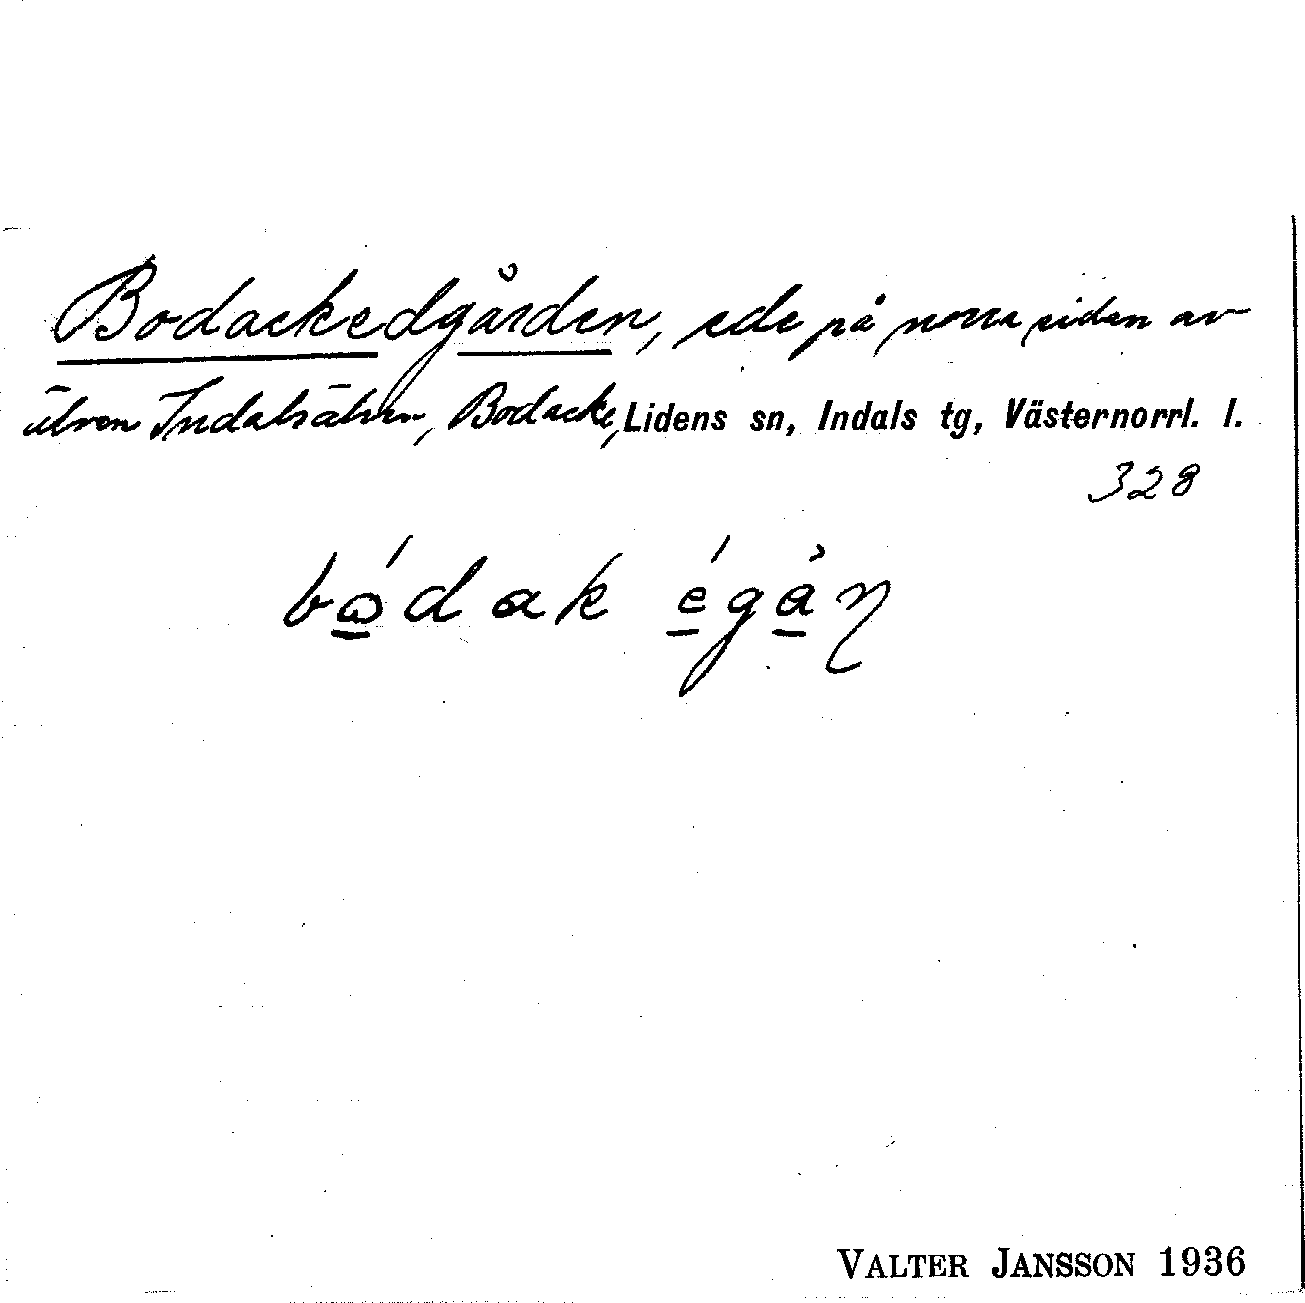 Bodackedgården, ede på norra sidan av
älven Indalsälven, Bodacke, Lidens sn, Indals tg, Västernorrl. l.
328
bódak égån
VALTER JANSSON 1936